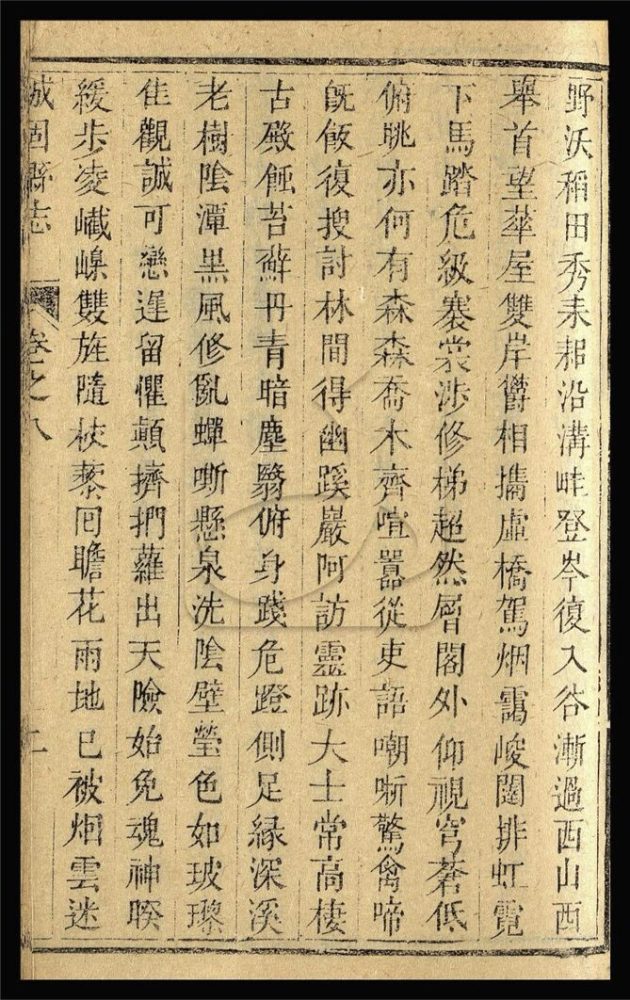 野沃稻田秀耒耜沿溝畦登岑復入谷漸過西山西
舉首望華屋雙岸鬱相攜虛橋駕烟靄峻閣排虹霓
下馬踏危級褰裳涉修梯超然層閣外仰視穹蒼低
俯眺亦何有森森喬木齊喧囂從吏語嘲哳驚禽啼
既飯復搜討林間得幽蹊巖阿訪靈跡大士常高棲
古殿蝕苔蘚丹青暗塵翳俯身踐危磴側足緣深溪
老樹陰潭黒風修亂蟬嘶懸泉洗陰壁瑩色如玻瓈
佳觀誠可戀遲留懼顛擠捫蘿出天險始免魂神睽
緩步凌巀嵲雙旌隨杖藜囘瞻花雨地已被烟雲迷
城固縣志 卷之八 二